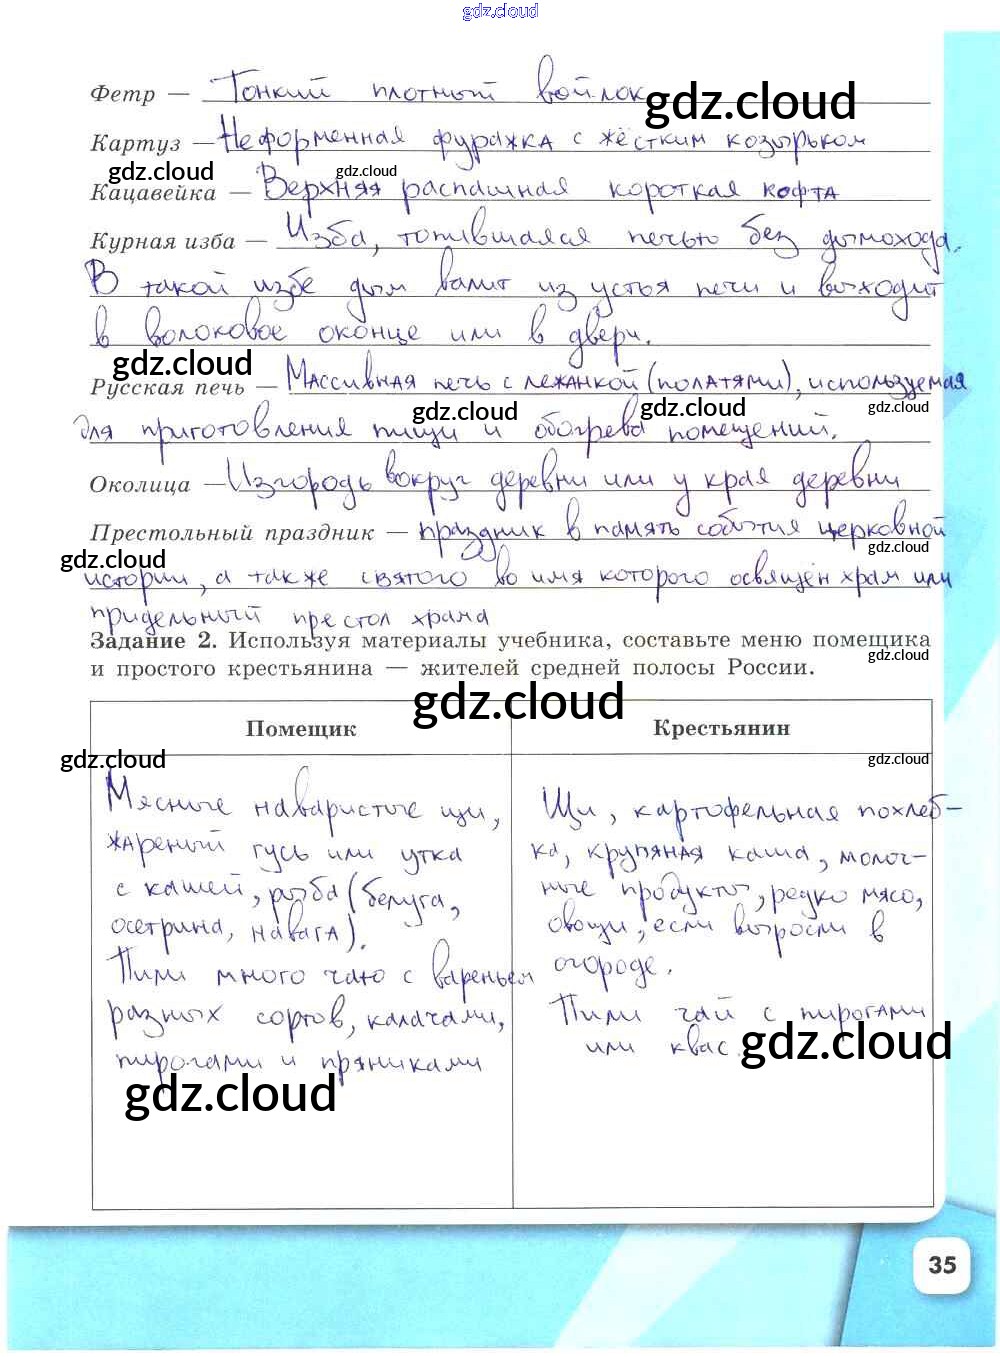 gdz.cloud
Фетр — Тонкий плотный войлок
gdz.cloud
Картуз — Неформенная фуражка с жёстким козырьком
gdz.cloud
Кацавейка — Верхняя распашная короткая кофта
Курная изба — Изба, топившаяся печью без дымохода.
В такой избе дым валит из устья печи и выходит
в волоковое оконце или в двери.
gdz.cloud
Русская печь — Массивная печь с лежанкой (полатями), используемая
gdz.cloud gdz.cloud gdz.cloud
для приготовления пищи и обогрева помещений.
Околица — Изгородь вокруг деревни или у края деревни
Престольный праздник — праздник в память события церковной
gdz.cloud gdz.cloud
истории, а также святого во имя которого освящён храм или
придельный престол храма
Задание 2. Используя материалы учебника, составьте меню помещика
gdz.cloud
и простого крестьянина — жителей средней полосы России.
gdz.cloud
Помещик
Крестьянин
gdz.cloud gdz.cloud
Мясные наваристые щи,
жареный гусь или утка
с кашей, рыба (белуга,
осетрина, навага).
Пили много чаю с вареньем
разных сортов, калачами,
пирогами и пряниками
gdz.cloud
Щи, картофельная похлеб-
ка, крупяная каша, молоч-
ные продукты, редко мясо,
овощи, если выросли в
огороде.
Пили чай с пирогами
или квас.
gdz.cloud
35